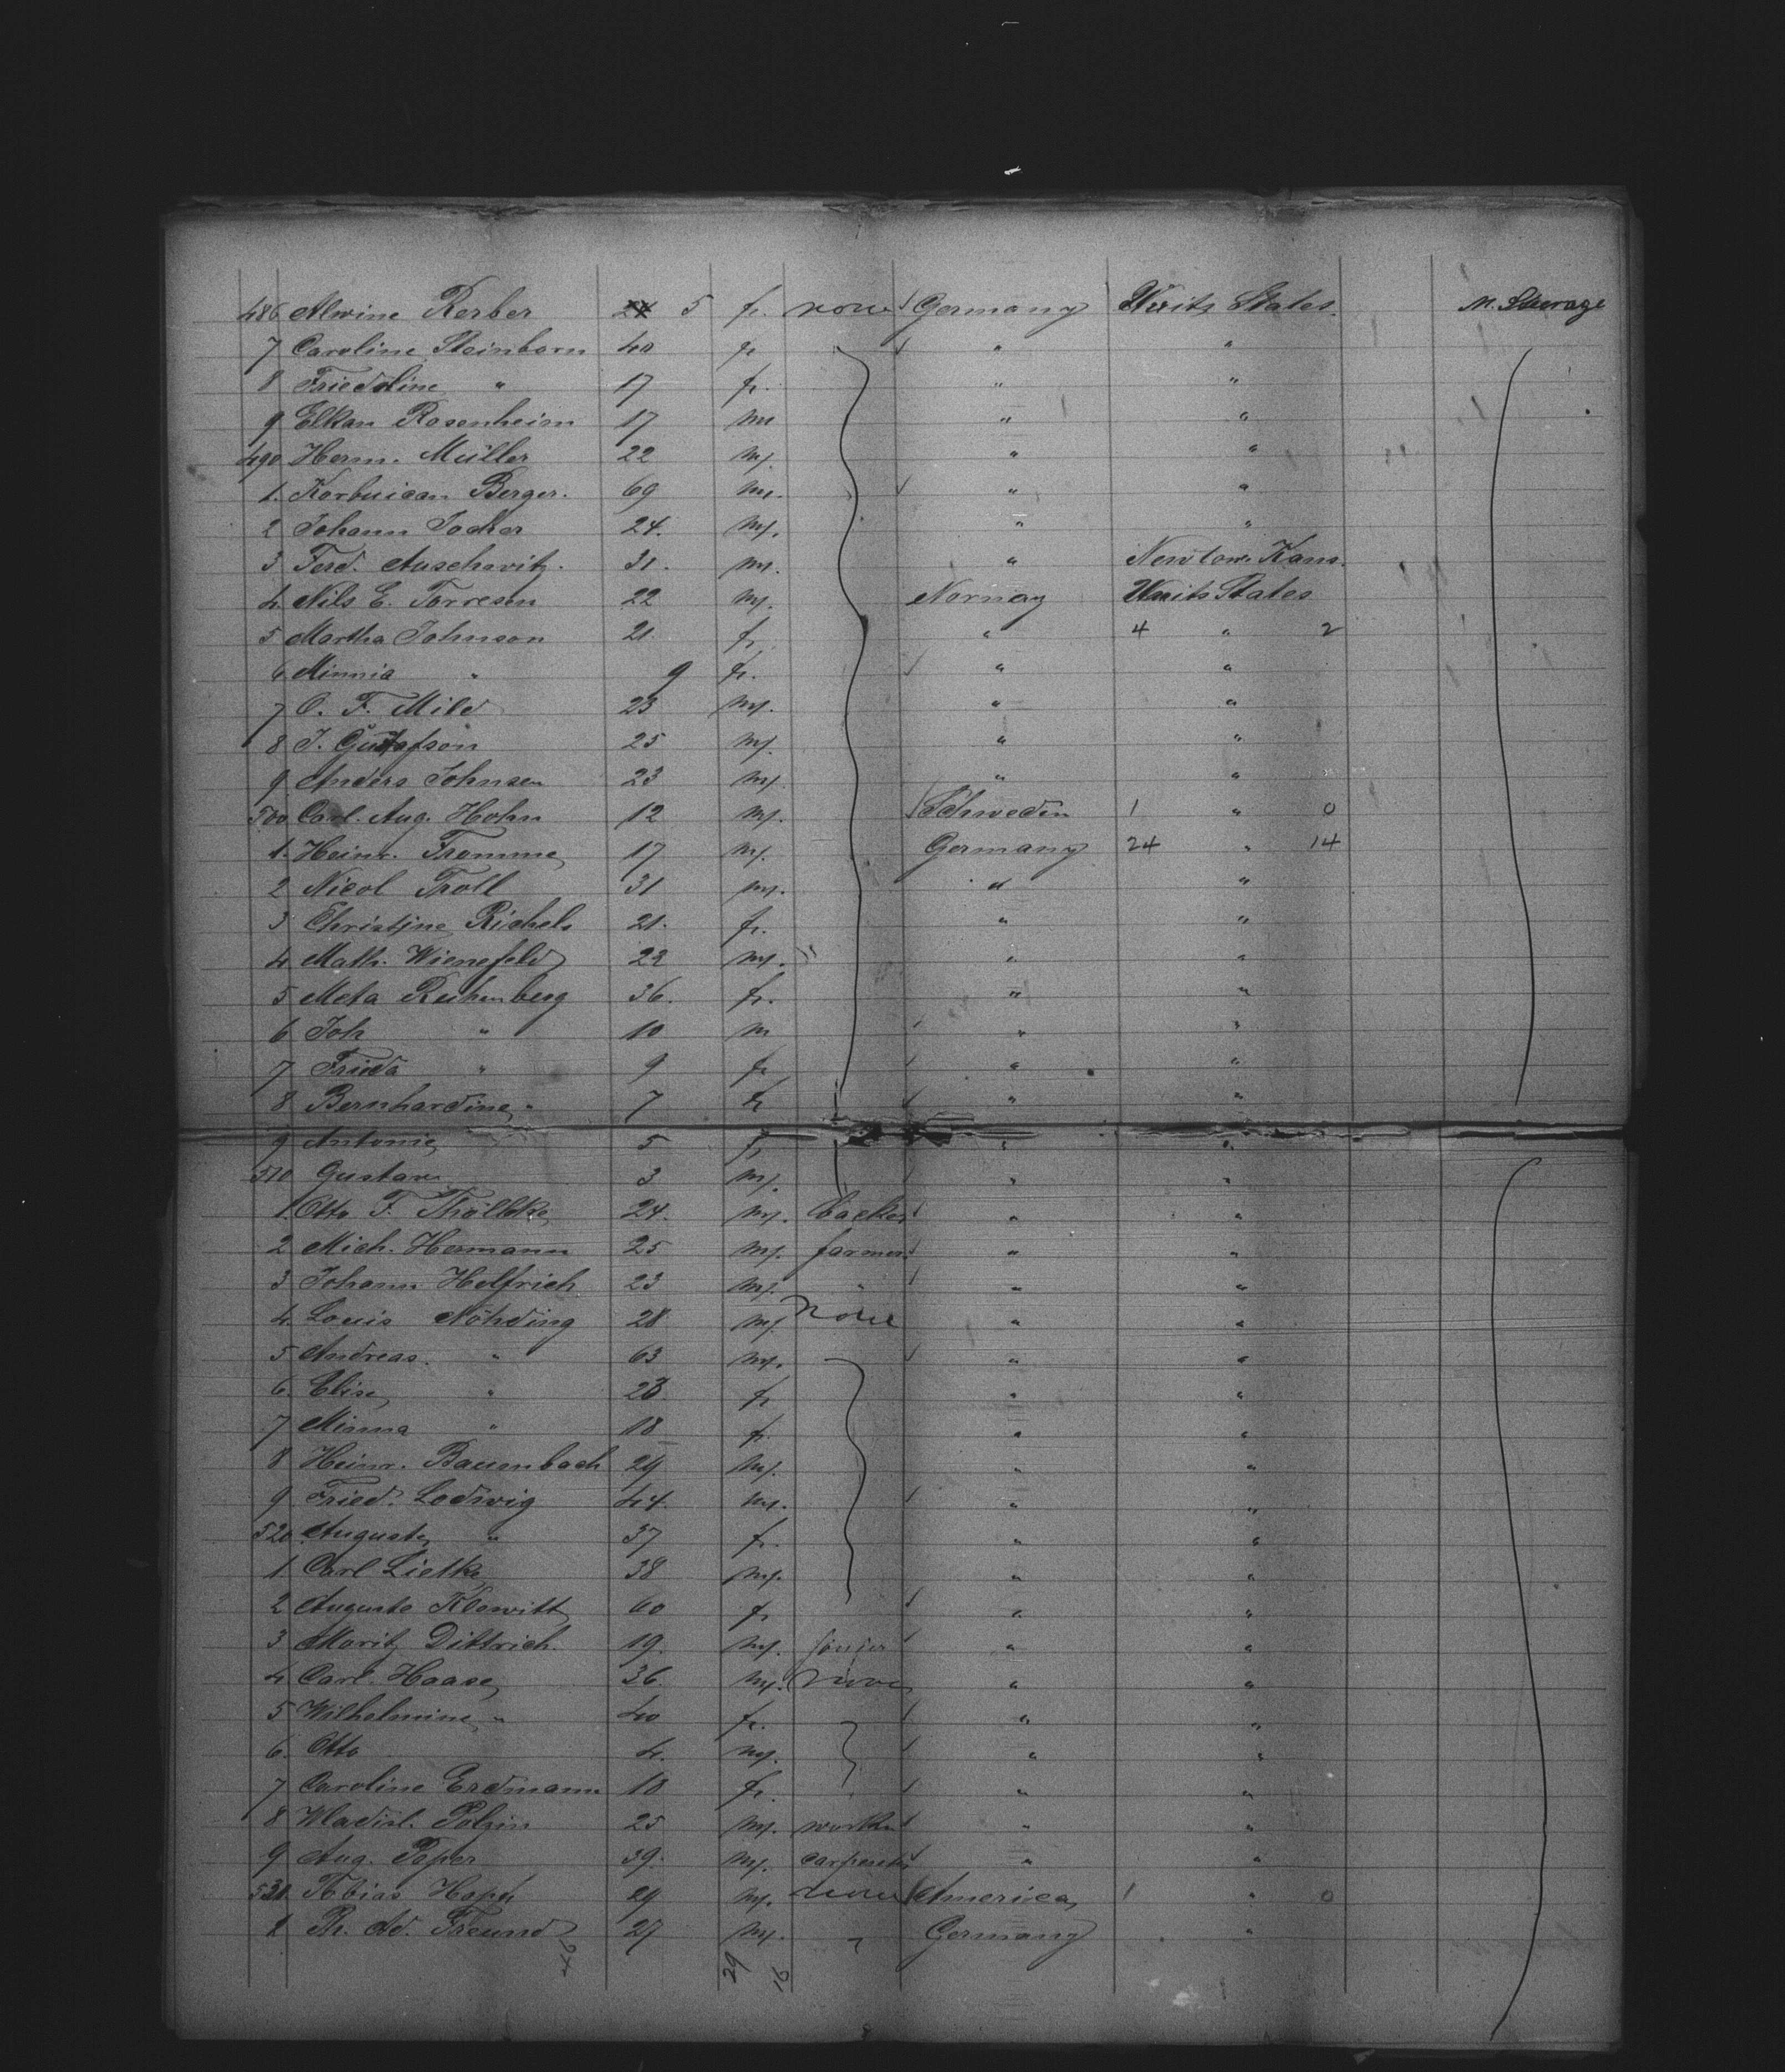 486 Alwine Kerber 5 fr. none Germany Unit. States M. Steerage
7 Caroline Steinborn 40 fr " "
8 Friedoline " 17 fr. " "
9 Elkan Rosenheim 17 m " "
490 Herm. Müller 22 m. " "
1. Berger. 69 m. " "
2 Johann 24. m. " "
3 Ferd. 31. m. " Newton Kans.
4 Nils E. Torresen 22 m. Norway Unit. States
5 Martha Johnson 21 fr. " 4 " 2
6 Minnia " 9 fr. " "
7 O. F. Mild 23 m. " "
8 J. Gustafson 25 m. " "
9 Anders Johnsen 23 m. " "
500 Carl. Aug. Hohn 12 m. Schweden 1 " 0
1. Heinr. Fromme 17 m. Germany 24 " 14
2 Nicol Troll 31 m. " "
3 Christine Richels 21. fr. " "
4 Math. Wienefeld 22 m. " "
5 Meta Reihenberg 36. fr. " "
6 Joh " 10 m " "
7 Frieda " 9 fr " "
8 Bernhardine " 7 fr " "
9 Antonie 5 fr " "
510 Gustav 3 m. " "
1. Otto F. 24. m. backer " "
2 Mich. Hermann 25 m. farmer " "
3 Johann Helfrich 23 m. " " "
4 Louis Nöhding 28 m. none " "
5 Andreas. " 63 m. " "
6. Elise " 28 fr " "
7 Minna " 18 fr. " "
8 Heinr. Bauenbach 29 m. " "
9 Fried. Lodwig 44. m. " "
520 Auguste " 37 fr. " "
1 Carl Lietke 38 m. " "
2 Auguste Klewitt 60 fr " "
3 Moritz Dittrich. 19. m. " "
4 Carl. Haase 36. m. none " "
5 Wilhelmine " 40 fr. " "
6. Otto 4. m. " "
7 Caroline Erdmann 10 fr. " "
8 Wladisl. 25 m. " "
9 Aug. Peper 39. m. carpenter " "
530. Tobias 29 m. none America 1 " 0
1 Ph. Ad. Freund 27 m. " Germany "
29